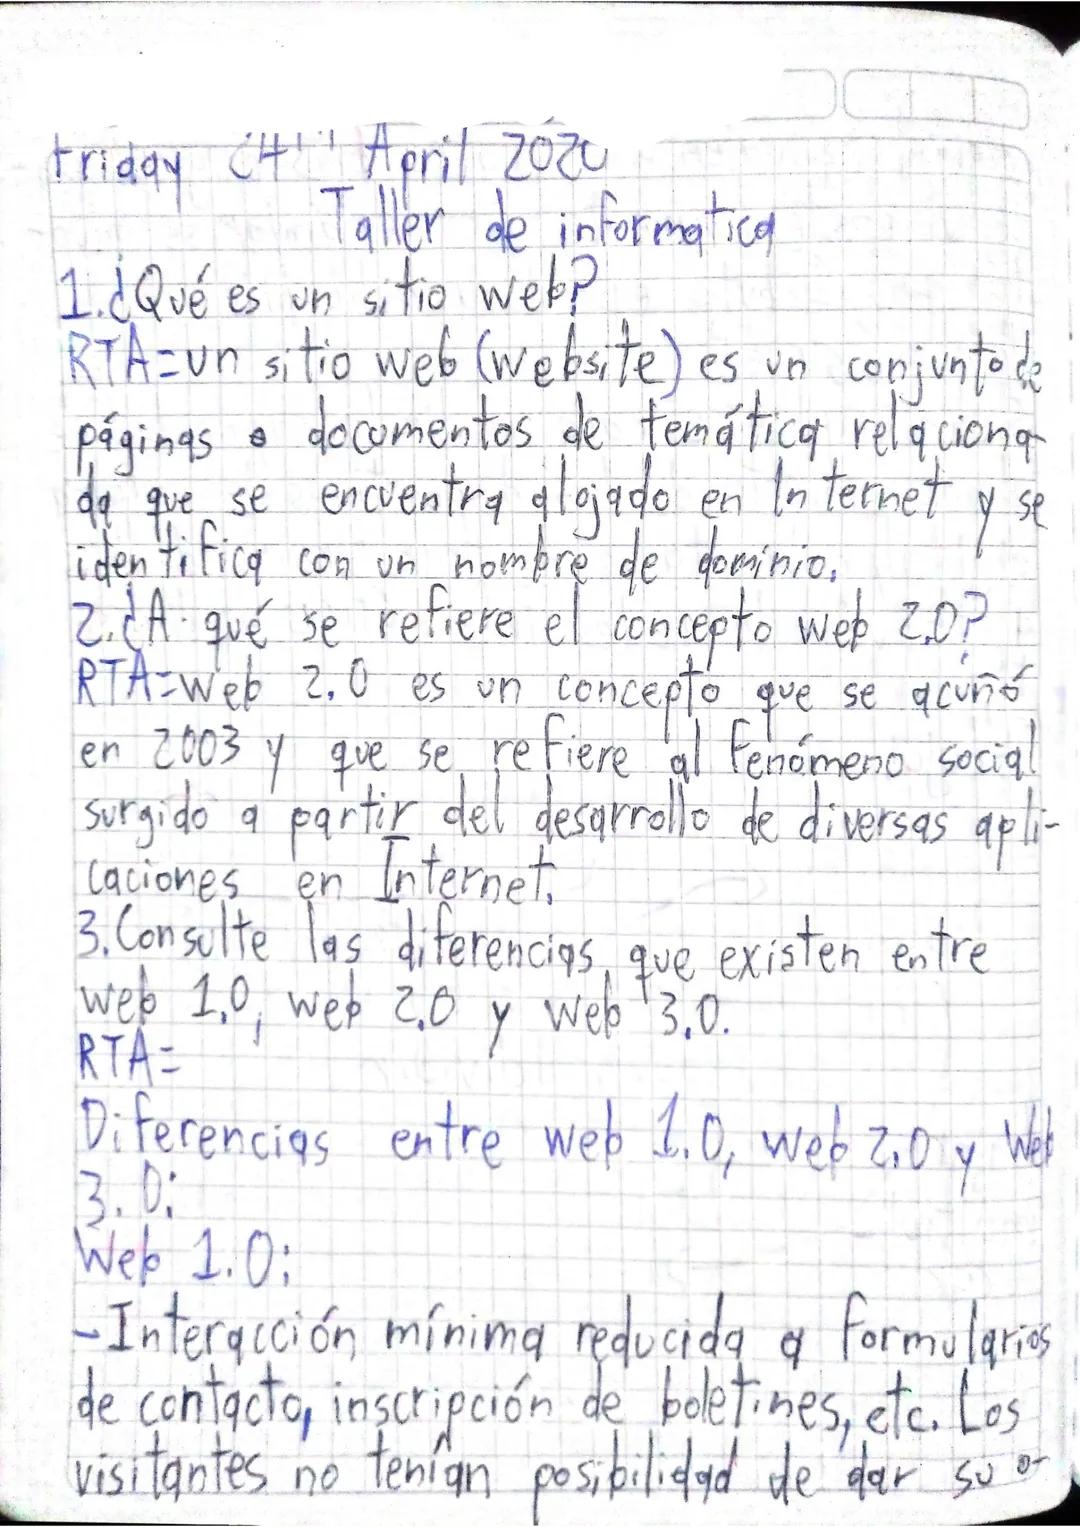 Friday 24th April 2020
Taller de informatica
1.¿Qué es un sitio web?
RTA=un sitio web (website) es un conjunto de
páginas o documentos de temática relaciona
da que se encuentra alojado en Internet y se
identifica con un nombre de dominio.
2.¿A qué se refiere el concepto web 2.0?
RTA=web 2.0 es un concepto que se acuñó
en 2003 y que se refiere al fenómeno social
surgido a partir del desarrollo de diversas apli-
caciones en Internet.
3.Consulte las diferencias que existen entre
web 1.0, web 2.0 y web 3.0.
RTA=
Diferencias entre web 1.0, web 2.0 y Web
3.0:
Web 1.0:
-Interacción mínima reducida a formularios
de contacto, inscripción de boletines, etc. Los
visitantes no tenían posibilidad de dar su o-